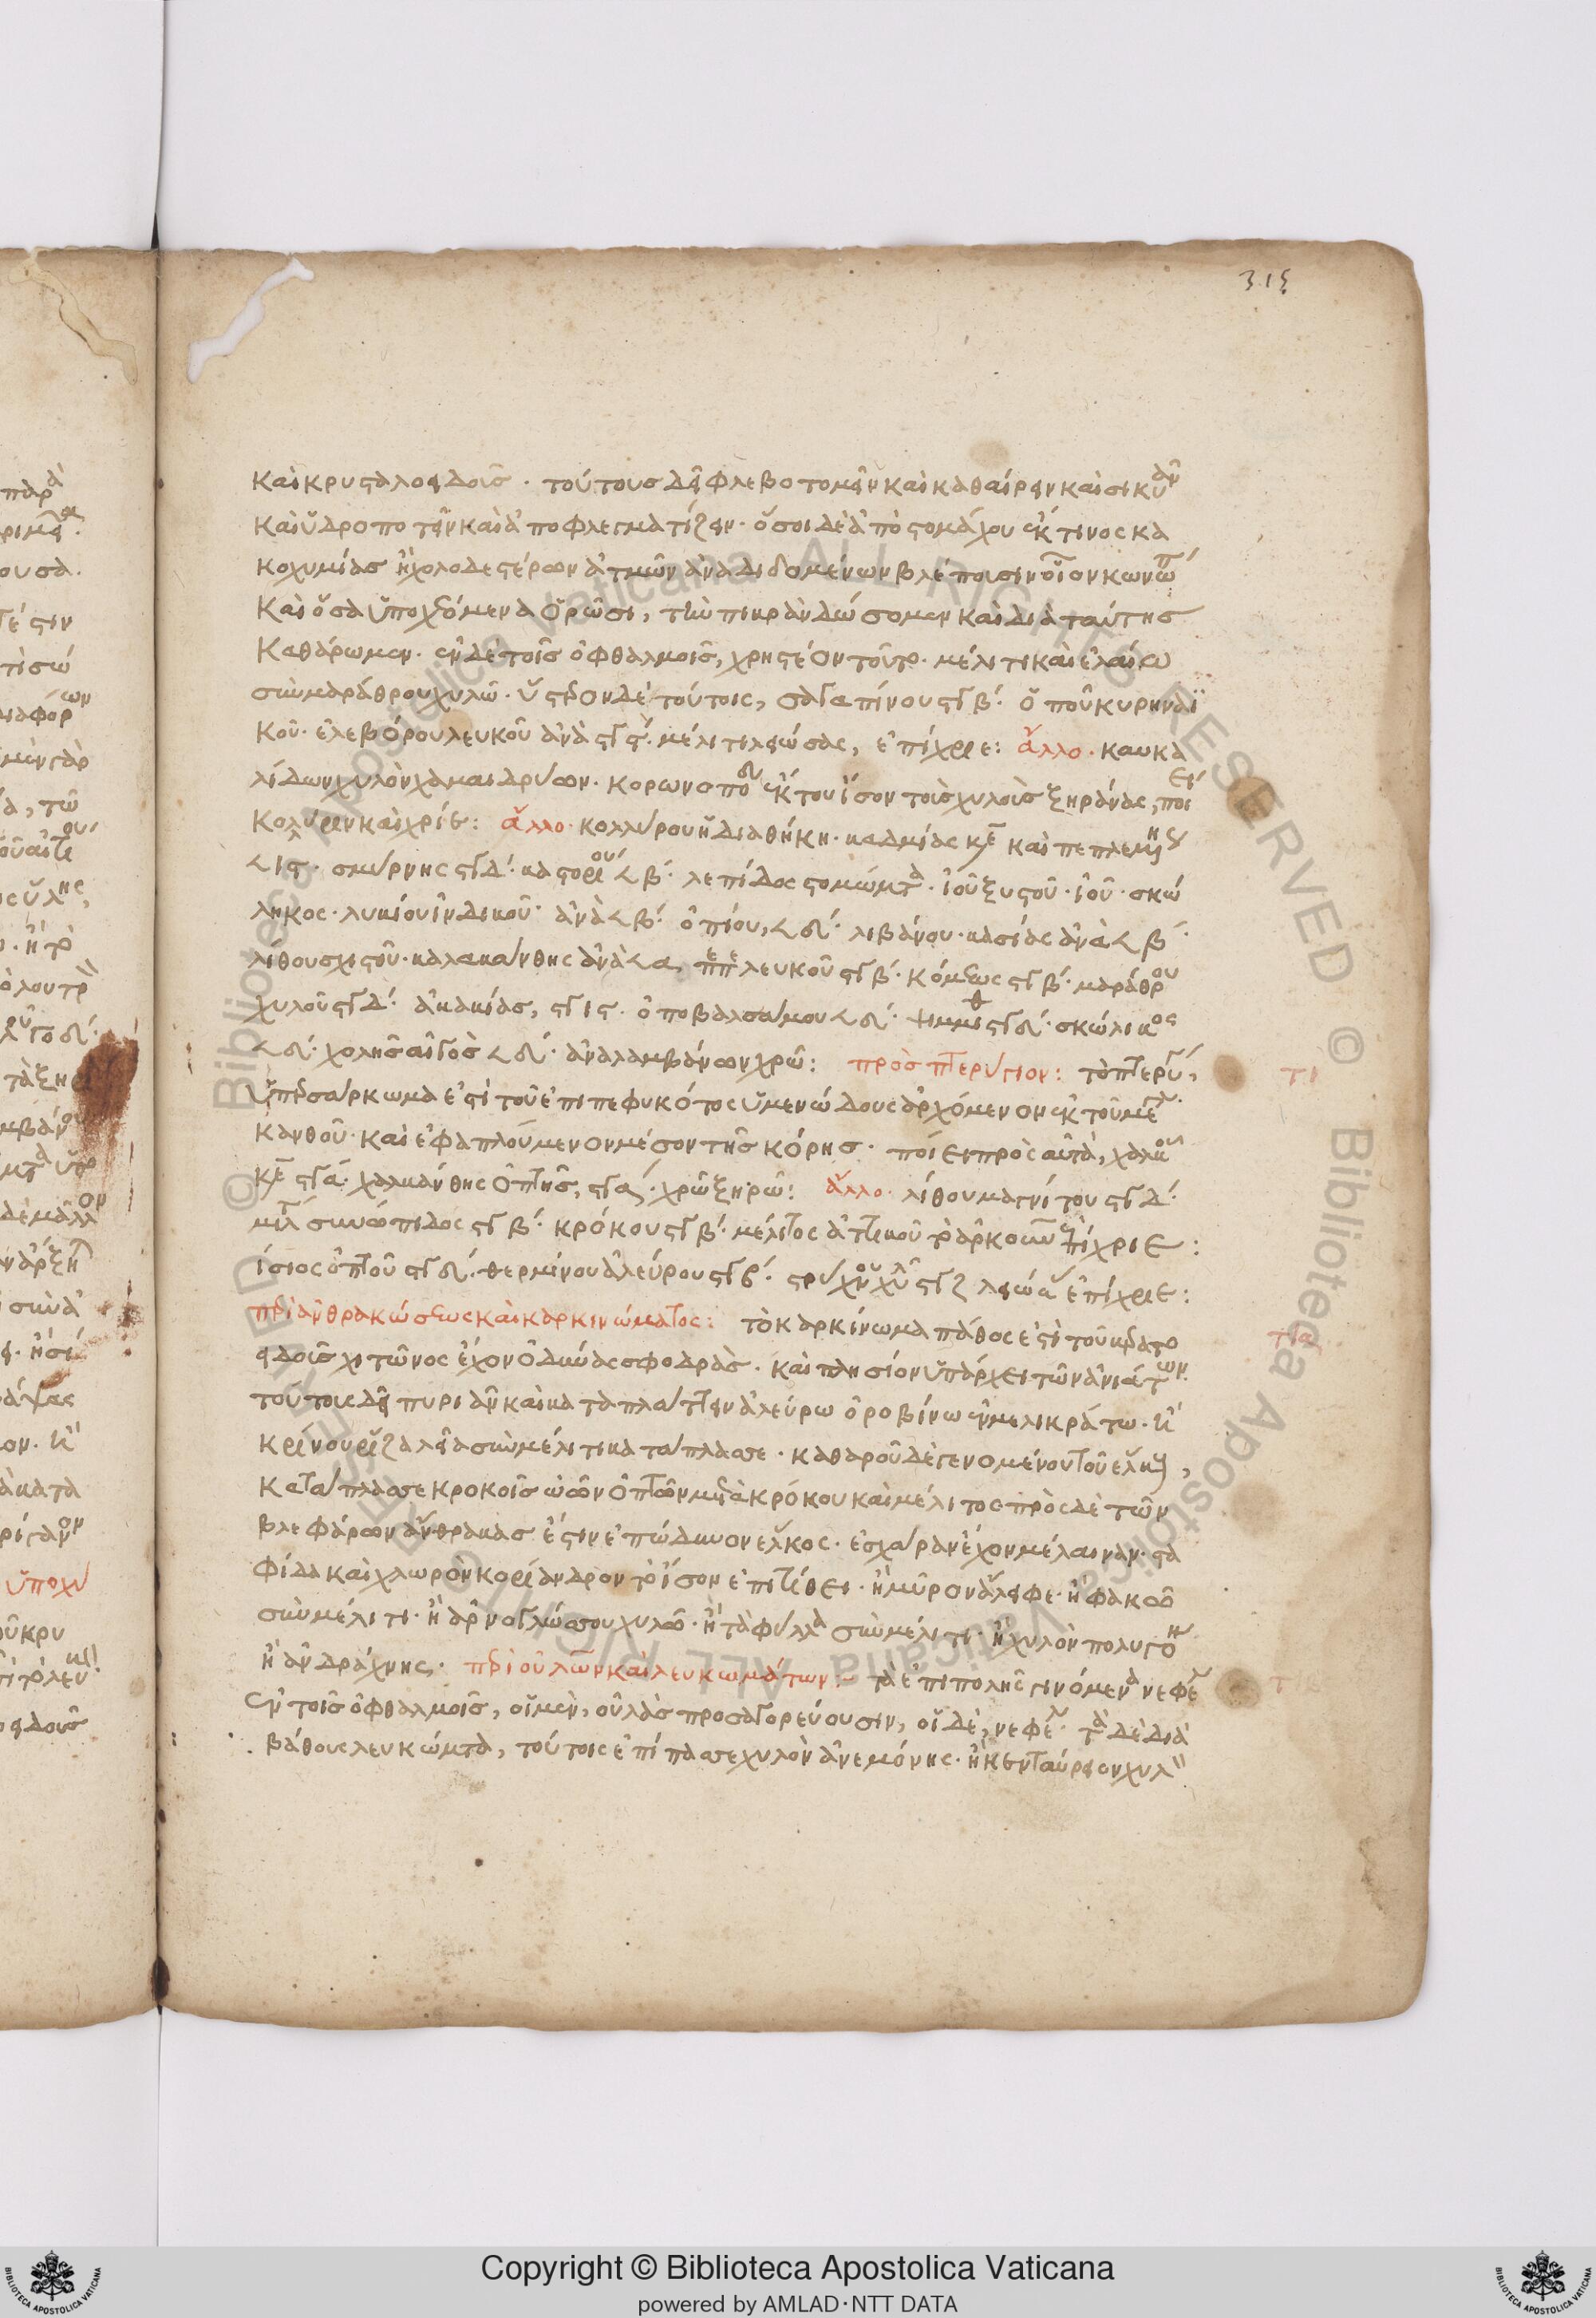 315
καὶ κρυσταλοειδοῖς · τούτους δεῖ φλεβοτομεῖν καὶ καθαίρειν καὶ σικυᾶν
καὶ ὑδροποτεῖν καὶ ἀποφλεγματίζειν · ὅσοι δὲ ἀπὸ στομάχου ἔκ τινος κα
κοχυμίας ἢ χολοδεστέρων ἀτμῶν ἀναδιδομένων βλέποισιν οἷον κωνώπ
καὶ ὅσα ὑποχεόμενα ὁρῶσι, τὴν πικρὰν δώσομεν καὶ διὰ ταύτης
καθάρωμεν · ἐν δὲ τοῖς ὀφθαλμοῖς, χρηστέον τούτω · μέλιτι καὶ ἐλαίω
σὺν μαράθρου χυλῶ · ὕστερον δὲ τούτοις, σαγαπίνου στγ β΄ · ὀποῦ κυρηναϊ
κοῦ · ἐλεβόρου λευκοῦ ἀνὰ στγ ϛ΄ · μέλιτι λειώσας, ἐπίχριε : ἄλλο · καυκα
λίδων χυλὸν χαμαιδρύων · κορωνοποδ ἐκ τοῦ ἴσου τοῖς χυλοῖς ξηράνας, ποίει
κολύριν καὶ χρίε : ἄλλο · κολλύρου ἡ διαθήκη · καδμίας κεκ καὶ πεπλεμης
𐅻 ιϛ · σμύρνης στγ δ΄ · καστορίου 𐅻 β΄ · λεπίδος στομώματ · ἰοῦ ξυστοῦ · ἰοῦ · σκώ
ληκος · λυκίου ἰνδικοῦ · ἀνὰ 𐅻 β΄ · ὀπίου, 𐅻 δ΄ · λιβάνου · κασίας ἀνὰ 𐅻 β΄ ·
λίθου σχιστοῦ · καλακάνθης ἀνὰ 𐅻 α, πεπε λευκοῦ στγ β΄ · κόμεως στγ β΄ · μαράθρου
χυλοῦ στγ δ΄ · ἀκακίας, στγ ιϛ · ὀποβαλσάμου 𐅻 δ΄ · ψιμμιθ στγ δ΄ · σκώληκος
𐅻 δ΄ · χολῆς αἰγὸς 𐅻 δ΄ · ἀναλαμβάνων χρῶ : πρὸς πτερύγιον : τὸ πτερύγ,
ὑπερσάρκωμα ἐστὶ τοῦ ἐπιπεφυκότος ὑμενώδους ἀρχόμενον ἐκ τοῦ μεγ
κανθοῦ · καὶ ἐφαπλούμενον μέσον τῆς κόρης · ποίει πρὸς αὐτὰ, χαλκοῦ
κεκ στγ α΄ · χαλκάνθης ὀπτῆς, στγ α΄ · χρῶ ξηρῶ : ἄλλο · λίθου μαγνίτου στγ δ΄ ·
μιλτ σινώπιδος στγ β΄ · κρόκου στγ β΄ · μέλιτος ἀττικοῦ τὸ ἀρκοῦν ἐπίχριε :
ίσιος ὀπτοῦ στγ δ΄ · θερμίνου ἀλεύρου στγ β΄ · στρύχνου χυλ στγ ζ λειώσ ἐπίχριε :
περὶ ἀνθρακώσεως καὶ καρκινώματος : τὸ καρκίνωμα πάθος ἐστὶ τοῦ κερατο
ειδοῖς χιτῶνος ἔχον ὀδύνας σφοδρὰς · καὶ πλησίον ὑπάρχει τῶν ἀνιάτων
τούτοις δεῖ πυριᾶν καὶ καταπλάττειν ἀλεύρω ὀροβίνω ἐν μελικράτω · ἢ
κρίνου ρίζα λεῖα σὺν μέλιτι κατάπλασσε · καθαροῦ δὲ γενομένου τοῦ ἕλκους,
κατάπλασσε κροκοῖς ὠῶν ὀπτῶν μετὰ κρόκου καὶ μέλιτος πρὸς δὲ τῶν
βλεφάρων ἄνθρακας ἔστιν ἐπώδυνον ἕλκος · ἐσχάραν ἔχον μέλαιναν · στα
φίδα καὶ χλωρὸν κορίανδρον τὸ ἴσον ἐπιτίθει · ἢ μύρον ἄλειφε · ἢ φακοῦ
σὺν μέλιτι · ἢ ἀρνογλώσσου χυλῶ · ἢ τὰ φύλλα σὺν μέλιτι · ἢ χυλὸν πολυγόν
ἢ ἀνδράχνης · περὶ οὐλῶν καὶ λευκωμάτων :- τὰ ἐπιπολῆς γινόμενα νεφελ
ἐν τοῖς ὀφθαλμοῖς, οἱ μὲν, οὐλὰς προσαγορεύουσιν, οἱ δὲ, νεφελ · τὰ δὲ διὰ
βάθους λευκώματα, τούτοις ἐπίπασσε χυλὸν ἀνεμόνης · ἢ κενταύρειον χυλ
τι
τια
τιβ
Copyright © Biblioteca Apostolica Vaticana
powered by AMLAD·NTT DATA